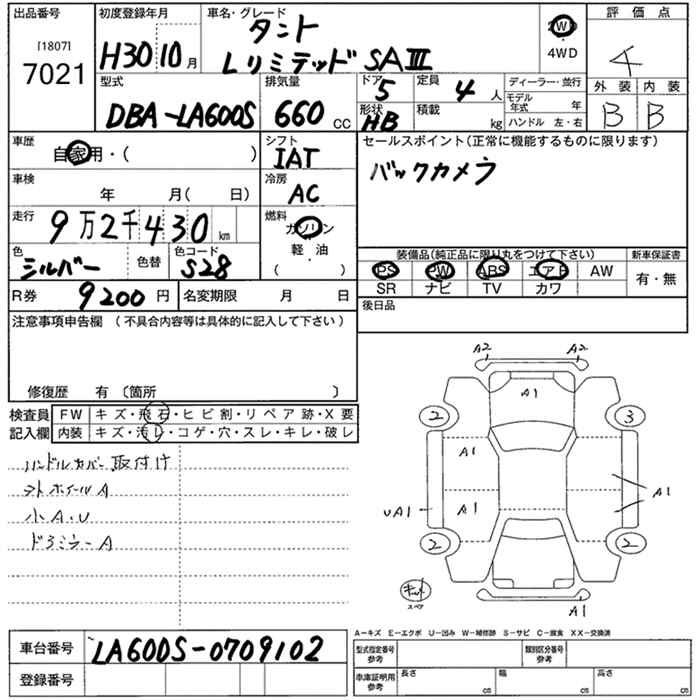 出品番号
[1807]
7021
初度登録年月
H30 10月
車名・グレード
タント
Lリミテッド SAⅢ
2WD
・
4WD
評価点
4
外装 内装
B B
型式
DBA-LA600S
排気量
660 CC
ドア
5
定員
4 人
形状
HB
積載
kg
ディーラー・並行
モデル年式 年
ハンドル 左・右
車歴
自家用・( )
シフト
IAT
車検
年 月( 日)
冷房
AC
走行
9万2千430 km
燃料
ガソリン
軽・油
・
( )
色
シルバー
色替
色コード
S28
R券 9200 円
名変期限 月 日
セールスポイント(正常に機能するものに限ります)
バックカメラ
装備品(純正品に限り丸をつけて下さい)
PS PW ABS エアB AW
SR ナビ TV カワ
新車保証書
有・無
後日品
注意事項申告欄 (不具合内容等は具体的に記入して下さい)
修復歴 有 〔箇所 〕
検査員記入欄
FW キズ・飛石・ヒビ割・リペア跡・X要
内装 キズ・汚レ・コゲ・穴・スレ・キレ・破レ
ハンドルカバー取付け
ストホイールA
小A・U
ドアミラーA
A2 A2
A1
2 3
A1
A1
UA1 A1
2 2
キット
スペア
A1
A-キズ E-エクボ U-凹み W-補修跡 S-サビ C-腐食 XX-交換済
車台番号 LA600S-0709102
登録番号
型式指定番号
参考
類別区分番号
参考
車庫証明用
参考
長さ cm
幅 cm
高さ cm